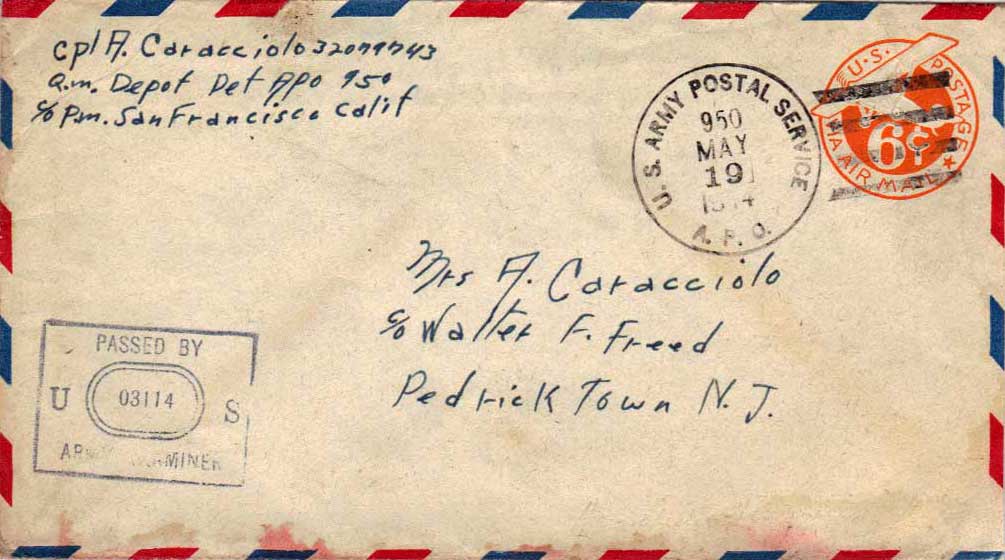 cpl A. Caracciolo 32079743
Q.m. Depot Det APO 950
c/o P.m. San Francisco Calif
U.S. ARMY POSTAL SERVICE
950
MAY
19
1944
A.P.O.
U.S. POSTAGE
6¢
VIA AIR MAIL
Mrs A. Caracciolo
c/o Walter F. Freed
Pedrick Town N.J.
PASSED BY
U 03114 S
ARMY EXAMINER